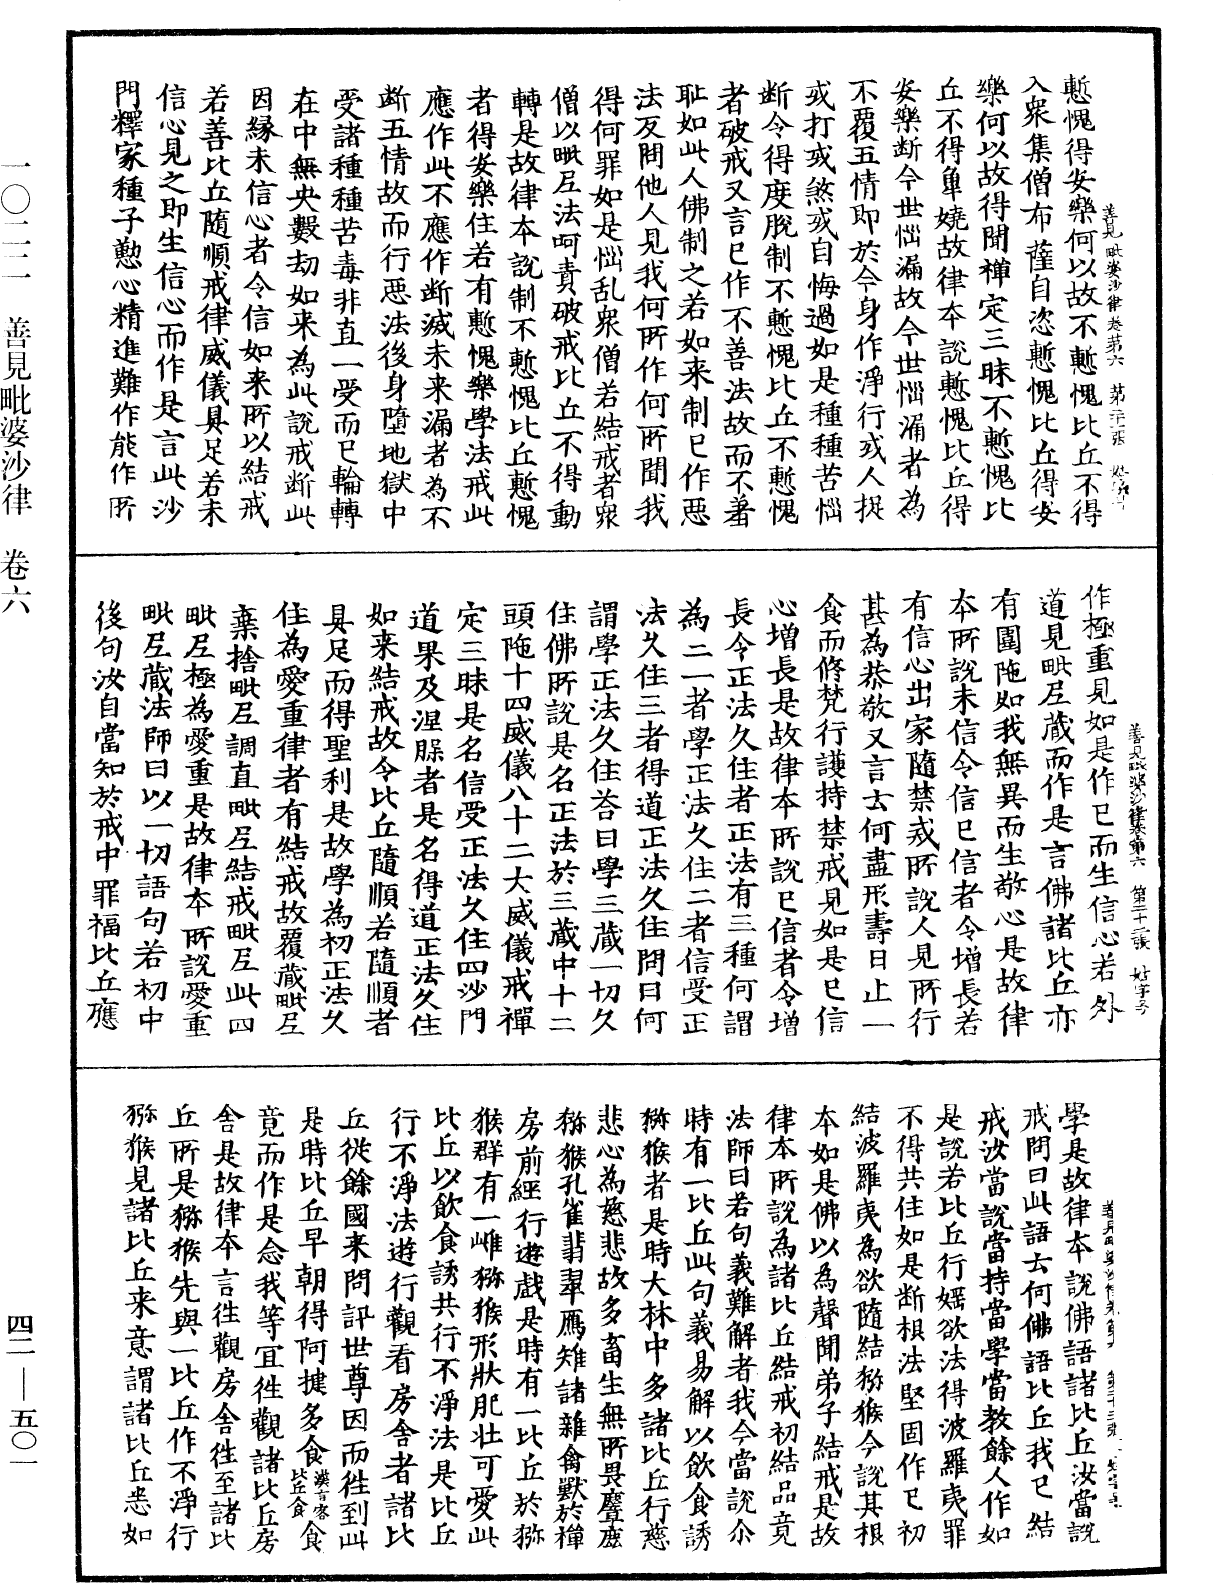 一〇二二　善見毗婆沙律　卷六
四二—五〇一
慙愧得安樂何以故不慙愧比丘不得
善見毗婆沙律卷第六　第二十一張　好字号
入衆集僧布薩自恣慙愧比丘得安
樂何以故得聞禪定三昧不慙愧比
丘不得單嬈故律本說慙愧比丘得
安樂斷今世惱漏故今世惱漏者為
不覆五情即於今身作淨行或人捉
或打或煞或自悔過如是種種苦惱
斷令得度脫制不慙愧比丘不慙愧
者破戒又言已作不善法故而不羞
恥如此人佛制之若如來制已作惡
法反問他人見我何所作何所聞我
得何罪如是惱乱衆僧若結戒者衆
僧以毗尼法呵責破戒比丘不得動
轉是故律本說制不慙愧比丘慙愧
者得安樂住若有慙愧樂學法戒此
應作此不應作斷滅未來漏者為不
斷五情故而行惡法後身墮地獄中
受諸種種苦毒非直一受而已輪轉
在中無央數劫如來為此說戒斷此
因緣未信心者令信如來所以結戒
若善比丘隨順戒律威儀具足若未
信心見之即生信心而作是言此沙
門釋家種子懃心精進難作能作所
作極重見如是作已而生信心若外
善見毗婆沙律卷第六　第二十二張　好字号
道見毗尼藏而作是言佛諸比丘亦
有圍陁如我無異而生敬心是故律
本所說未信令信已信者令增長若
有信心出家隨禁戒所說人見所行
甚為恭敬又言云何盡形壽日止一
食而修梵行護持禁戒見如是已信
心增長是故律本所說已信者令增
長令正法久住者正法有三種何謂
為二一者學正法久住二者信受正
法久住三者得道正法久住問曰何
謂學正法久住荅曰學三藏一切久
住佛所說是名正法於三藏中十二
頭陁十四威儀八十二大威儀戒禪
定三昧是名信受正法久住四沙門
道果及涅槃者是名得道正法久住
如來結戒故令比丘隨順若隨順者
具足而得聖利是故學為初正法久
住為愛重律者有結戒故覆藏毗尼
棄捨毗尼調直毗尼結戒毗尼此四
毗尼極為愛重是故律本所說愛重
毗尼藏法師曰以一切語句若初中
後句汝自當知於戒中罪福比丘應
學是故律本說佛語諸比丘汝當說
善見毗婆沙律卷第六　第二十三張　好字号
戒問曰此語云何佛語比丘我已結
戒汝當說當持當學當教餘人作如
是說若比丘行婬欲法得波羅夷罪
不得共住如是斷根法堅固作已初
結波羅夷為欲隨結獼猴今說其根
本如是佛以為聲聞弟子結戒是故
律本所說為諸比丘結戒初結品竟
法師曰若句義難解者我今當說尒
時有一比丘此句義易解以飲食誘
獼猴者是時大林中多諸比丘行慈
悲心為慈悲故多畜生無所畏麞鹿
獼猴孔雀翡翠鴈雉諸雜禽獸於禪
房前經行遊戲是時有一比丘於獼
猴群有一雌獼猴形狀肥壯可愛此
比丘以飲食誘共行不淨法是比丘
行不淨法遊行觀看房舍者諸比
丘從餘國來問訊世尊因而徃到此
是時比丘早朝得阿揵多食漢言客比丘食食
竟而作是念我等宜徃觀諸比丘房
舍是故律本言徃觀房舍徃至諸比
丘所是獼猴先與一比丘作不淨行
獼猴見諸比丘來意謂諸比丘悉如